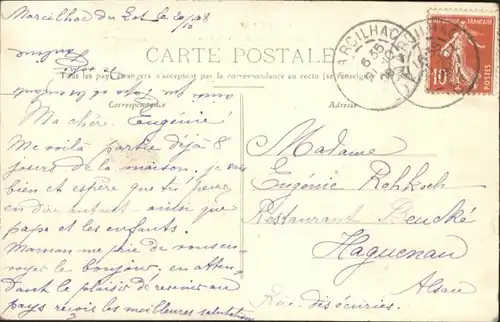 Marcilhac du Lot le 20/10 08
CARTE POSTALE
Tous les pays étrangers n'acceptent pas la correspondance au recto (se renseigner
Correspondance
Adresse
MARCILHAC
RÉPUBLIQUE FRANÇAISE
10
POSTES
Ma chère Eugénie!
Me voilà partie déjà 8
jours de la maison, je suis
bien et espère que tu peux
en dire autant - ainsi que
papa et les enfants.
Maman me prie de vous en-
voyer le bonjour, en atten-
dant le plaisir de revenir au
pays reçois les meilleures salutations
ainsi que papa et les enfants
Madame
Eugénie Rohkoch
Restaurant Beucké
Haguenau
Alsace
Rue des écuries.